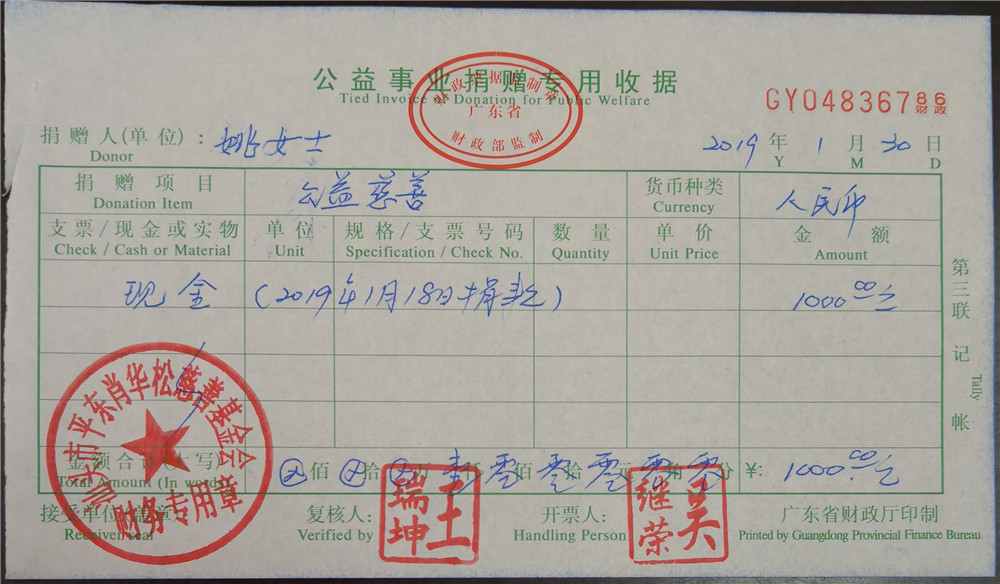 公益事业捐赠专用收据
Tied Invoice of Donation for Public Welfare
广东省
财政部监制
GY04836786
财政
捐赠人(单位): 姚女士
Donor
2019 年 1 月 30 日
Y M D
捐赠项目 公益慈善 货币种类 人民币
Donation Item Currency
支票/现金或实物 单位 规格/支票号码 数量 单价 金额
Check / Cash or Material Unit Specification / Check No. Quantity Unit Price Amount
现金 (2019年1月18日捐款) 1000.00元
第三联 记帐
Tally
市平东肖华松慈善基金会
财务专用章
金额合计(大写) 佰 拾 万 仟 零 佰 零 拾 零 元 零 角 零 分 ¥: 1000.00元
Total Amount (In words)
接受单位(盖章): 复核人: 王瑞坤 开票人: 吴继荣 广东省财政厅印制
Receiver/seal Verified by Handling Person Printed by Guangdong Provincial Finance Bureau